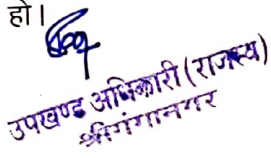 हो।
उपखण्ड अधिकारी (राजस्व)
श्रीगंगानगर